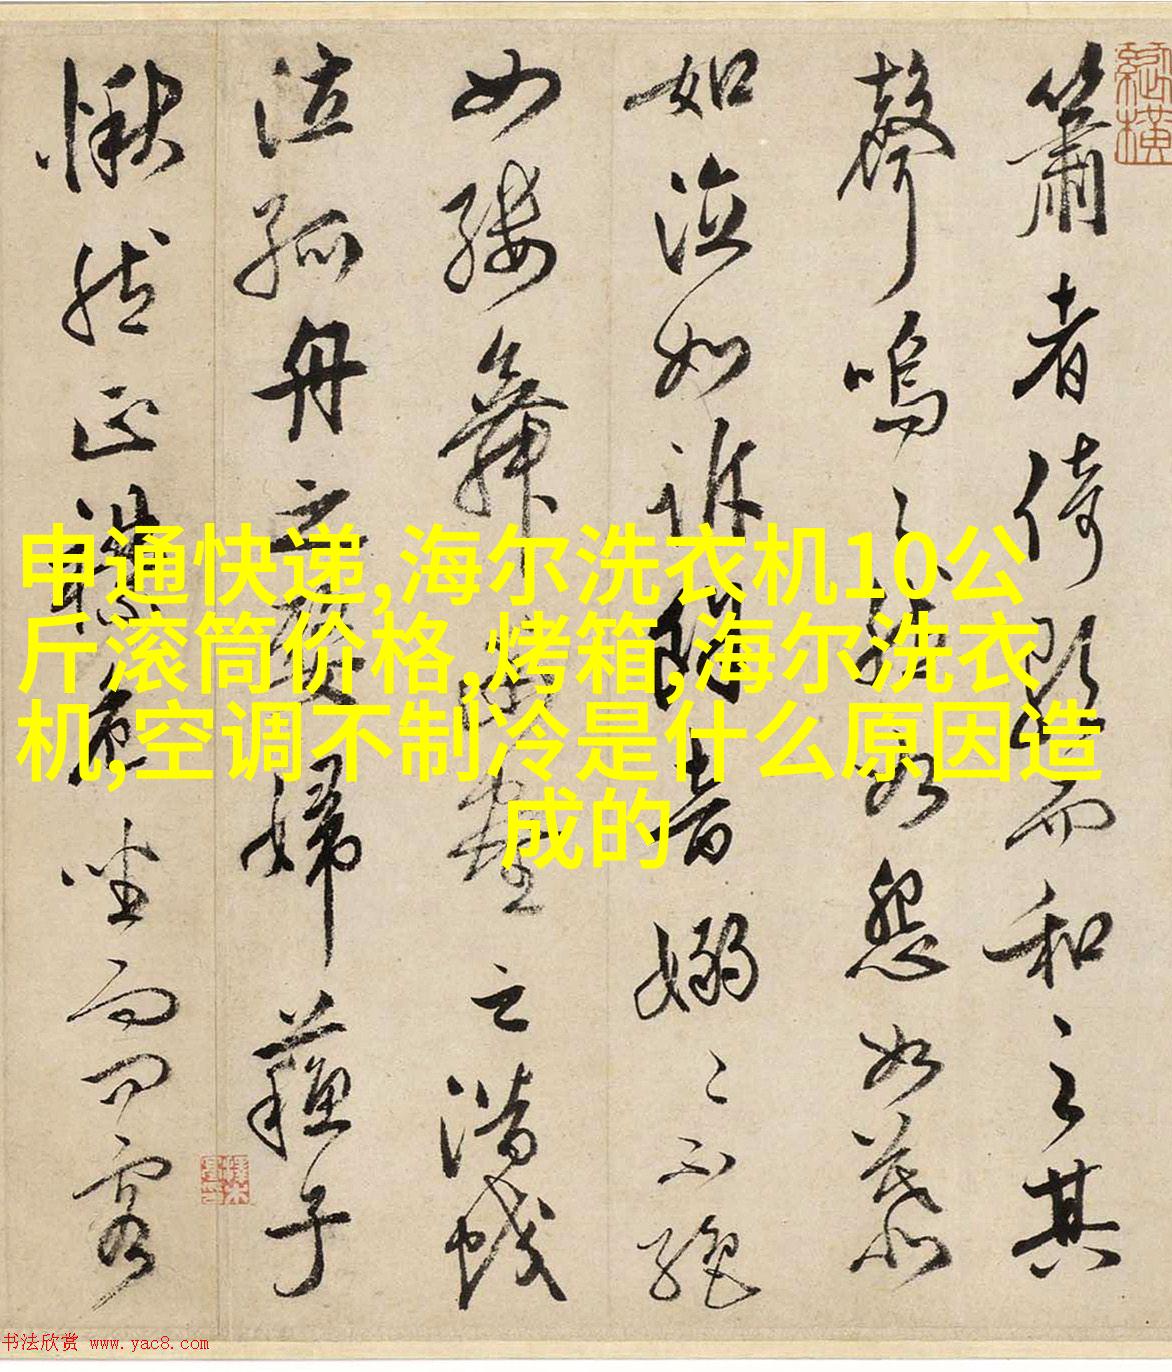 簫者倚歌而和之其
聲嗚〻然如怨如慕
如泣如訴餘音嫋〻不絕
如縷舞幽壑之潛蛟
泣孤舟之嫠婦蘇子
愀然正襟危坐而問客
申通快递,海尔洗衣机10公
斤滚筒价格,烤箱,海尔洗衣
机,空调不制冷是什么原因造
成的
书法欣赏 www.yac8.com